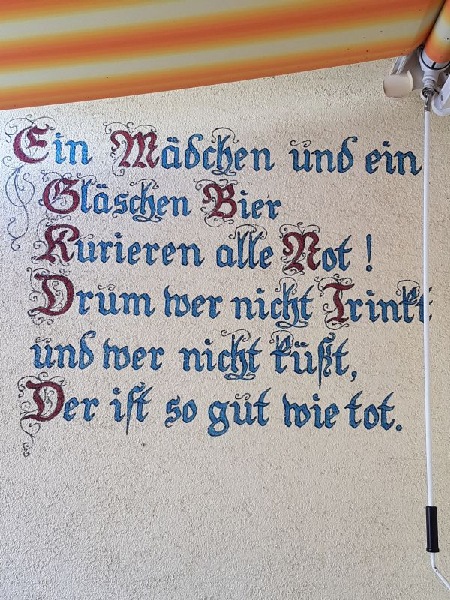 Ein Mädchen und ein
Gläschen Bier
Kurieren alle Not !
Drum wer nicht Trinkt
und wer nicht küßt,
Der ist so gut wie tot.